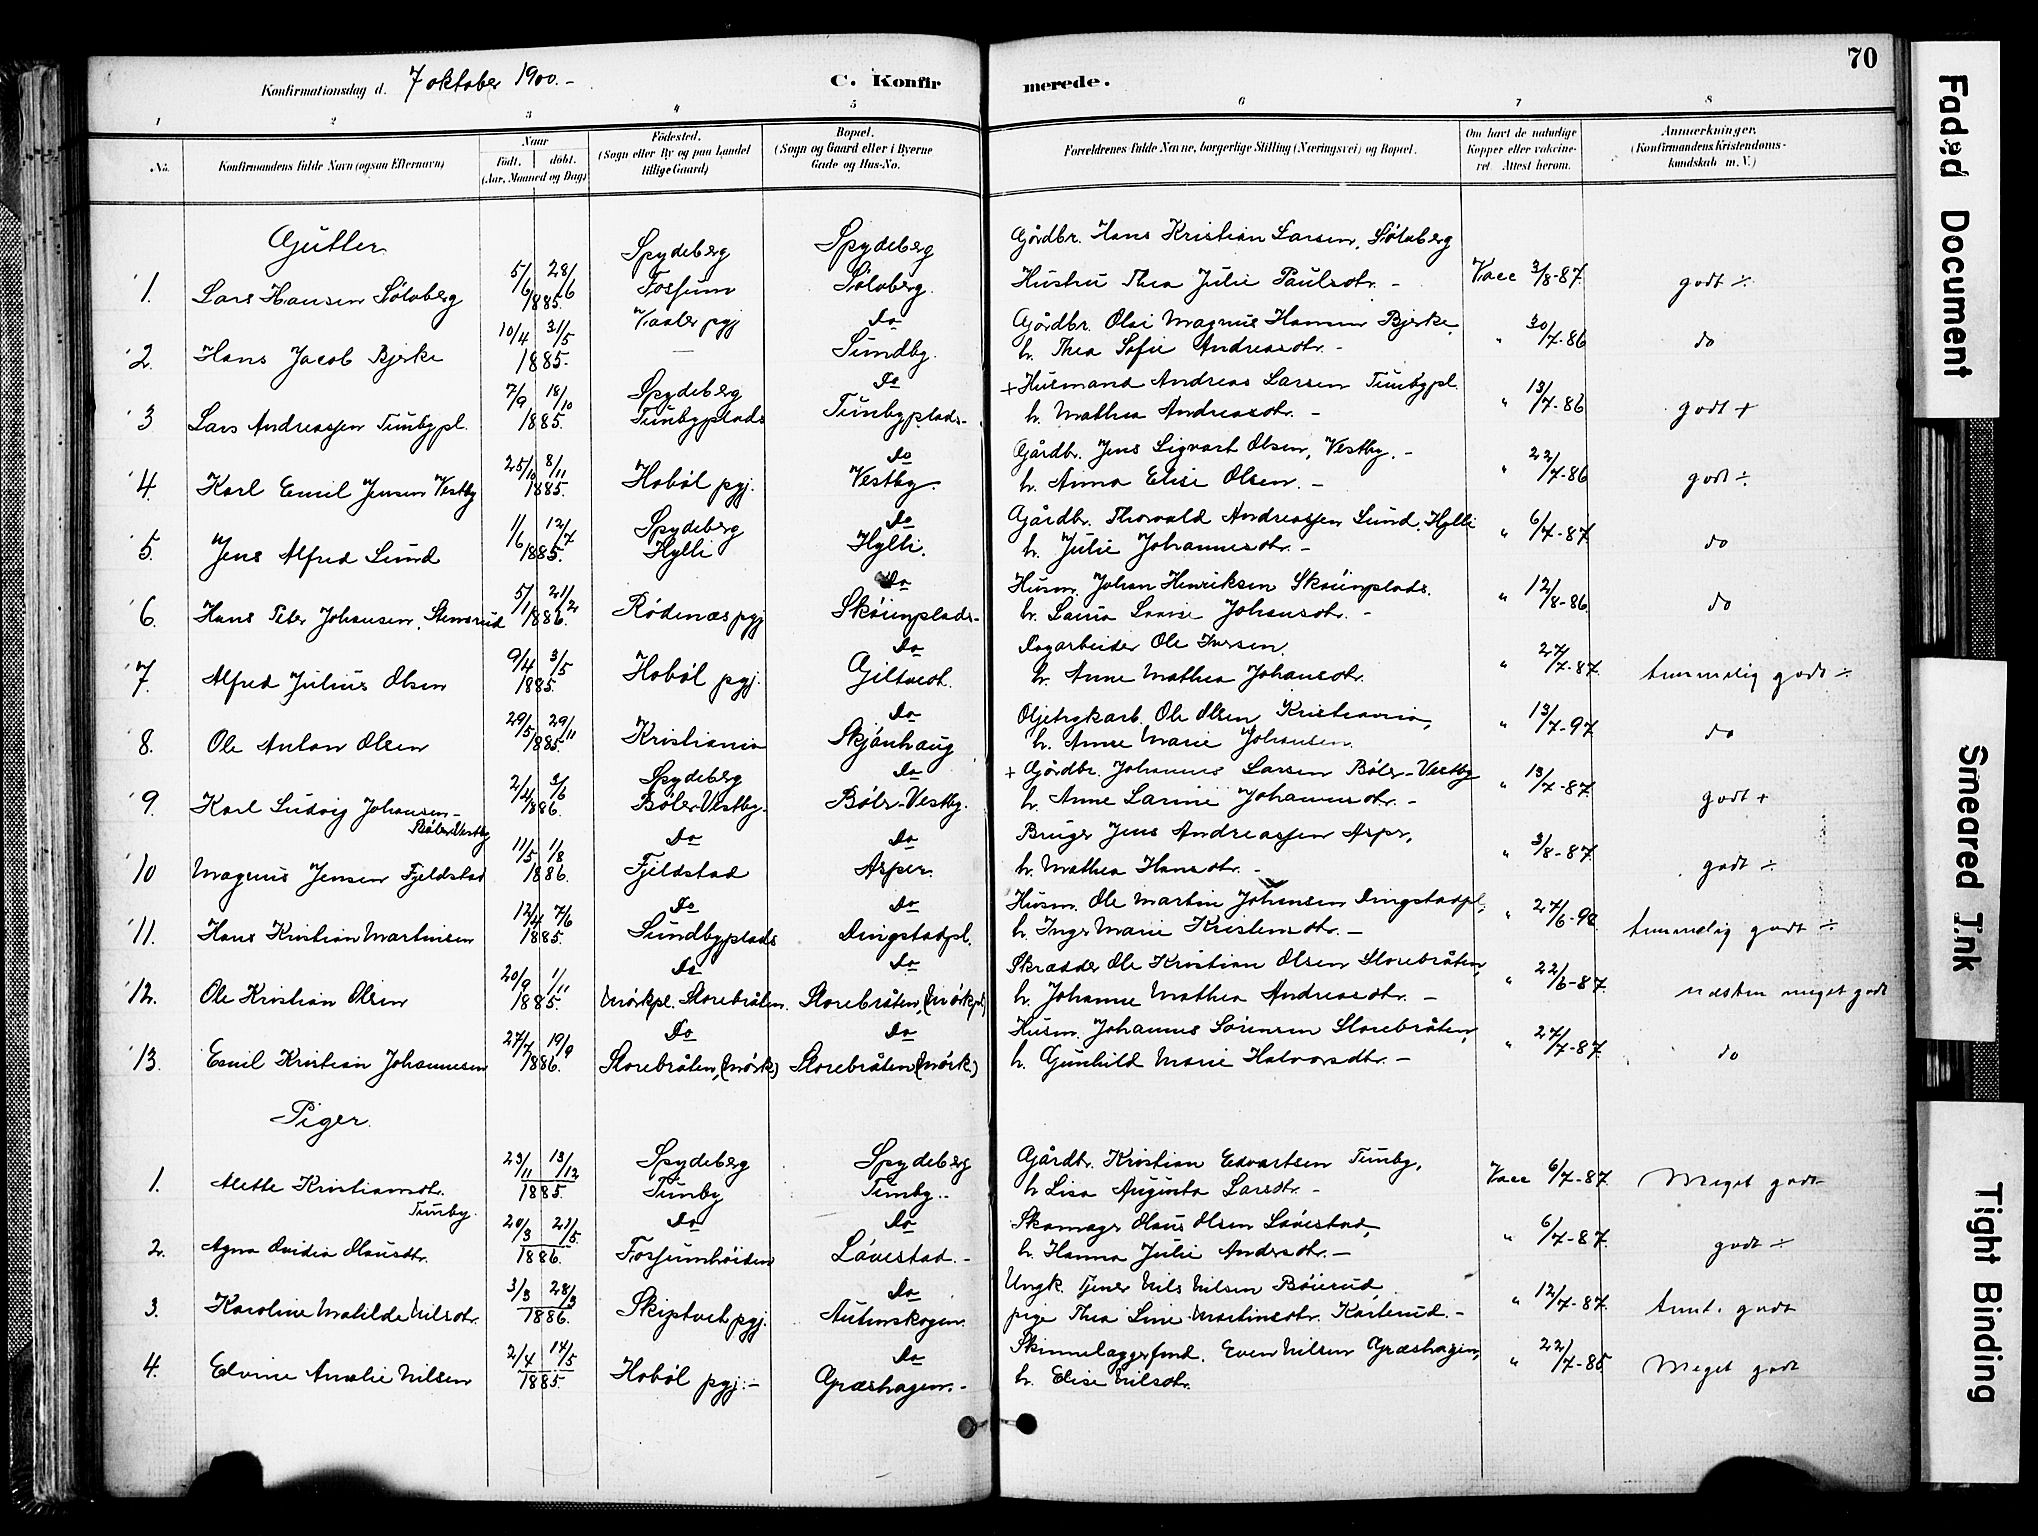 70
Konfirmationsdag d. 7 oktober 1900.-
C. Konfirmerede.
1 2 3 4 5 6 7 8
No.
Konfirmandens fulde Navn (ogsaa Efternavn)
Naar
Födt. döbt.
(Aar, Maaned og Dag)
Födested.
(Sogn eller By og paa Landet
tillige Gaard)
Bopæl.
(Sogn og Gaard eller i Byerne
Gade og Hus-No.
Forældrenes fulde Navne, borgerlige Stilling (Næringsvei) og Bopæl.
Om havt de naturlige
Kopper eller vakcine-
ret. Attest herom.
Anmærkninger.
(Konfirmandens Kristendoms-
kundskab m. V.)
Gutter
1. Lars Hansen Solaberg 5/6 28/6 1885. Spydeberg Fossum Spydeberg Solaberg. Gårdbr. Hans Kristian Larsen, Solaberg
Hustru Thea Julie Paulsdtr. - Vacc 3/8-87. godt ÷
2. Hans Jacob Bjerke 10/4 31/5 1885. Vaaler pgj do Sundby. Gårdbr. Olai Magnus Hansen Bjerke,
h. Thea Sofie Andreasdtr. - " 30/7-86 do
3 Lars Andreassen Timbypl. 7/9 18/10 1885. Spydeberg Timbyplads do Timbyplads- + Husmand Andreas Larsen Timbypl.
h. Mathea Andreasdtr. - " 13/7-86 godt +
4. Karl Emil Jensen Vestby 25/10 8/11 1885. Hobøl pgj. do Vestby. Gårdbr. Jens Sigvart Olsen, Vestby. -
h. Anna Elise Olsen. - " 22/7-86 godt ÷
5. Jens Alfred Lund 1/6 12/7 1885. Spydeberg Hylli do Hylli. Gårdbr. Thorvald Andreassen Lund, Hylli
h. Julie Johannesdtr. - " 6/7-87. do
6. Hans Peter Johansen, Stensrud 5/1 21/2 1886. Rødenæs pgj do Skoünplads- Husm. Johan Henriksen Skoünplads.
h. Johansdtr. - " 12/8-86. do
7. Alfred Julius Olsen 9/4 3/5 1885. Hobøl pgj. do Giltvedt. Dagarbeider Ole Iversen.
h. Anne Mathea Johansdtr. " 27/7-87. temmelig godt ÷
8. Ole Anton Olsen 29/5 29/11 1885. Kristiania do Skjønhaug Ole Olsen, Kristiania,
h. Anne Marie Johansen. " 13/7-97 do
9 Karl Ludvig Johansen-
Bøler Vestby 2/4 3/6 1886. Spydeberg Bøler Vestby. do Bøler-Vestby. + Gårdbr. Johannes Larsen Bøler-Vestby
h. Anne Larine Johannesdtr. - " 13/7-87. godt +
10 Magnus Jensen Fjeldstad 11/5 1/8 1886. do Fjeldstad do Asper. Bruger Jens Andreassen Asper,
h. Mathea Hansdtr. - " 3/8-87. godt ÷
11. Hans Kristian Martinsen 12/4 7/6 1885. do Sundbyplads do Dingstadpl. Husm. Ole Martin Johansen Dingstadpl,
h. Inger Marie Kristensdtr. - " 27/6-98 temmelig godt ÷
12. Ole Kristian Olsen 20/9 1/11 1885. do Mørkpl. Storebråten. do Storebråten, (Mørkpl) Skrædder Ole Kristian Olsen Storebråten,
h. Johanne Mathea Andreasdtr. - " 22/6-87. næsten meget godt
13. Emil Kristian Johannesen 27/7 19/9 1886. do Storebråten, (Mørk) do Storebråten (Mørk.) Husm. Johannes Sørensen Storebråten,
h. Gunhild Marie Halvorsdtr. - " 27/7-87. do
Piger.
1. Alette Kristiansdtr.
Timby. 23/11 13/12 1885. Spydeberg Timby Spydeberg Timby.. Gårdbr. Kristian Edvartsen Timby,
h. Lisa Augusta Larsdtr. - Vacc 6/7-87. Meget godt
2. Agna Ovidia Olausdtr. 20/3 21/5. 1886. do Fossumhøiden do Løvestad.- Skomager Olaus Olsen Løvestad,
h. Hanna Julie Andersdtr. - " 6/7-87. godt ÷
3. Karoline Matilde Nilsdtr. 3/3 28/3 1886. Skiptvet pgj. do Autenskogen. Ungk. tjener Nils Nilsen Böierud,
pige Thea Line Martinsdtr. Karlsrud. - " 12/7-87. temt. godt
4. Elvine Amalie Nilsen 2/4 14/5 1885. Hobøl pgj.- do Græshagen.- Skinnelæggerfmd. Even Nilsen Græshagen,
h. Elise Nilsdtr. " 22/7-85 Meget godt
Faded Document
Smeared Ink
Tight Binding